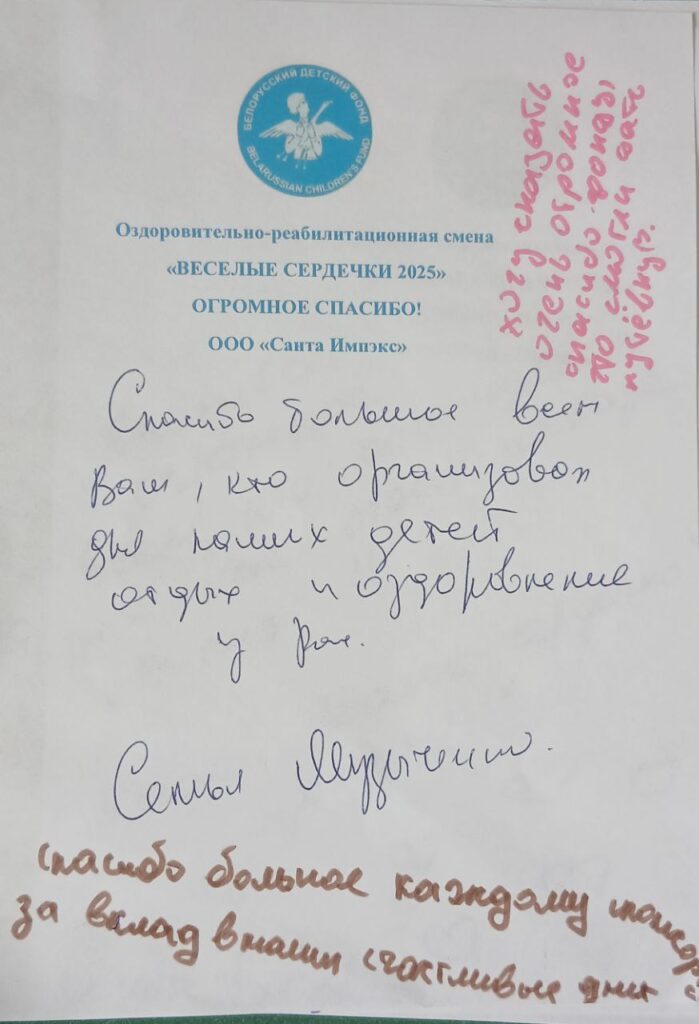 БЕЛОРУССКИЙ ДЕТСКИЙ ФОНД
BELARUSSIAN CHILDREN'S FUND
Оздоровительно-реабилитационная смена
«ВЕСЕЛЫЕ СЕРДЕЧКИ 2025»
ОГРОМНОЕ СПАСИБО!
ООО «Санта Импэкс»
хочу сказать
очень огромное
спасибо фонду
что смогли дать
путёвку.
Спасибо большое всем
Вам, кто организовал
для наших детей
отдых и оздоровление
у
Семья
спасибо большое каждому
за вклад в наши счастливые дни